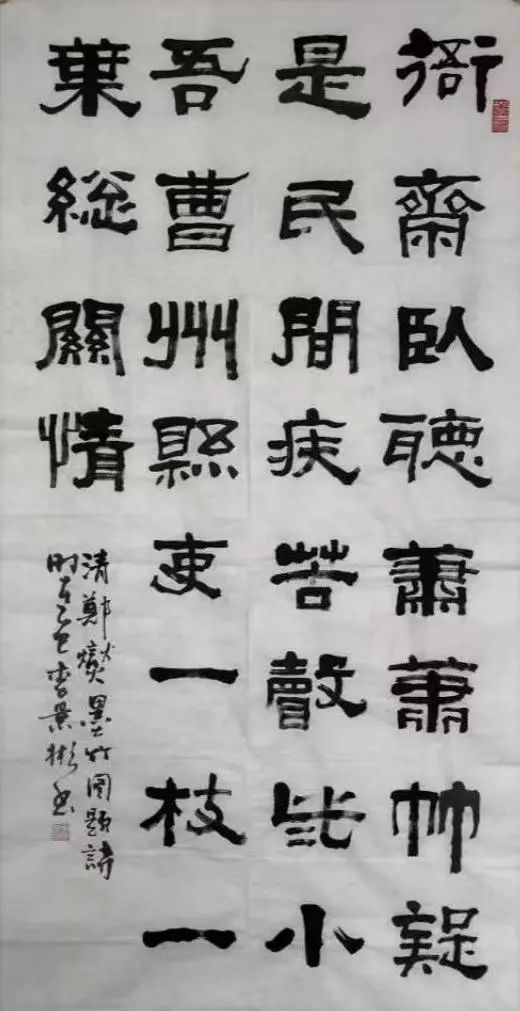 衙齋臥聽蕭蕭竹疑
是民間疾苦聲些小
吾曹州縣吏一枝一
葉総關情
清鄭燮墨竹图題詩
时在乙巳李景彬书